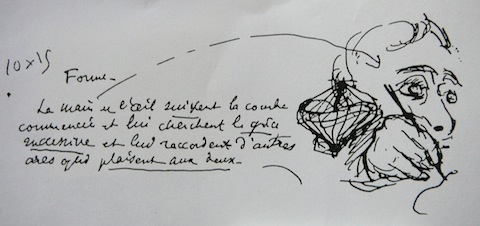 10 x 15
Forme –
La main et l'œil suivent la courbe
commencée et lui cherchent la grâce
successive et lui raccordent d'autres
arcs qui plaisent aux deux –